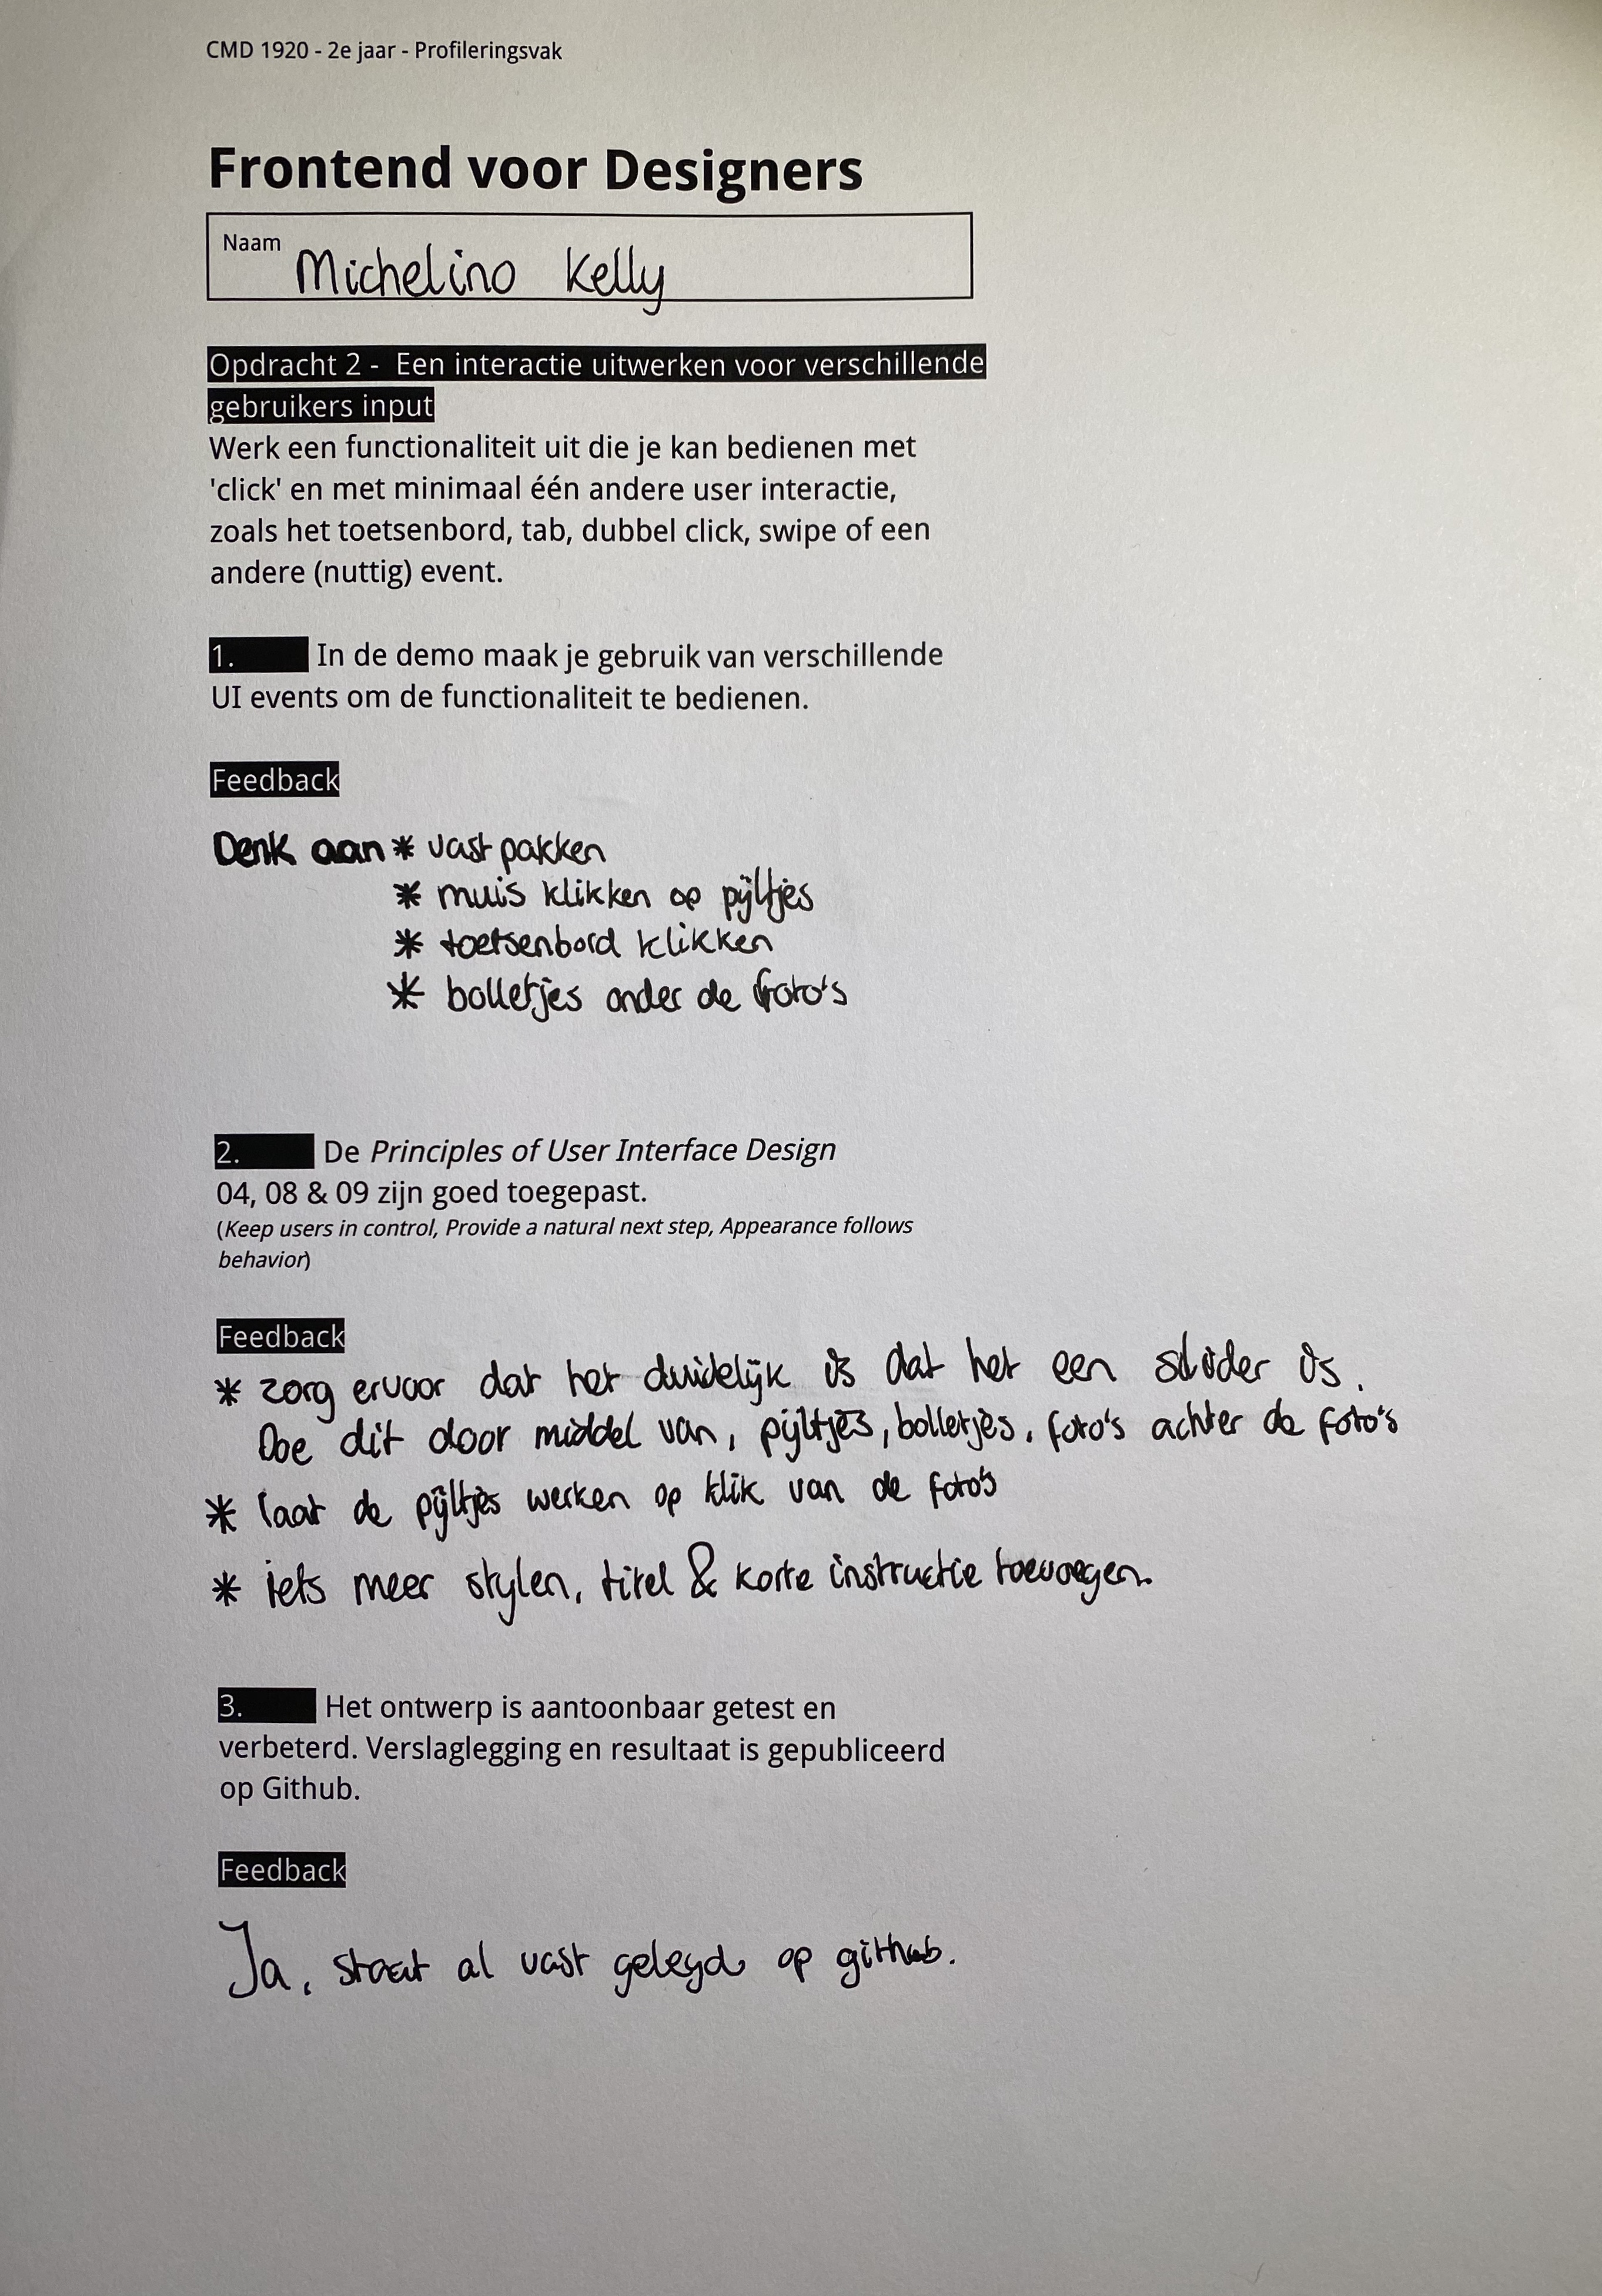 CMD 1920 - 2e jaar - Profileringsvak
Frontend voor Designers
Naam
Michelino Kelly
Opdracht 2 - Een interactie uitwerken voor verschillende
gebruikers input
Werk een functionaliteit uit die je kan bedienen met
'click' en met minimaal één andere user interactie,
zoals het toetsenbord, tab, dubbel click, swipe of een
andere (nuttig) event.
1. In de demo maak je gebruik van verschillende
UI events om de functionaliteit te bedienen.
Feedback
Denk aan * vast pakken
* muis klikken op pijltjes
* toetsenbord klikken
* bolletjes onder de foto's
2. De Principles of User Interface Design
04, 08 & 09 zijn goed toegepast.
(Keep users in control, Provide a natural next step, Appearance follows
behavior)
Feedback
* zorg ervoor dat het duidelijk is dat het een slider is.
Doe dit door middel van, pijltjes, bolletjes, foto's achter de foto's
* laat de pijltjes werken op klik van de foto's
* iets meer stylen, titel & korte instructie toevoegen.
3. Het ontwerp is aantoonbaar getest en
verbeterd. Verslaglegging en resultaat is gepubliceerd
op Github.
Feedback
Ja, staat al vast gelegd op github.